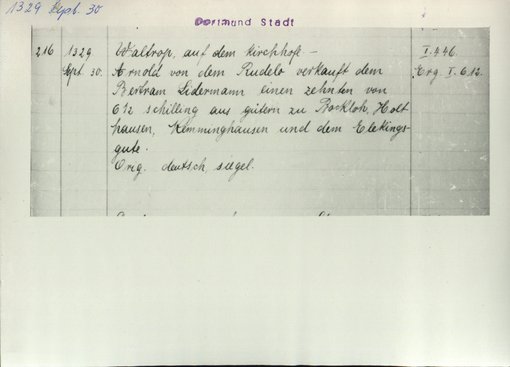 1329 Sept. 30
Dortmund Stadt
216 1329 Waltrop, auf dem Kirchhofe.- I. 446.
Sept. 30. Arnold von dem Rudelo verkauft dem Erg. I. 612.
Bertram Sidermann einen zehnten von
6½ schilling aus gütern zu Bockloh, Holt
hausen, Kemminghausen und dem Elekings-
gute.
Orig. deutsch, siegel.